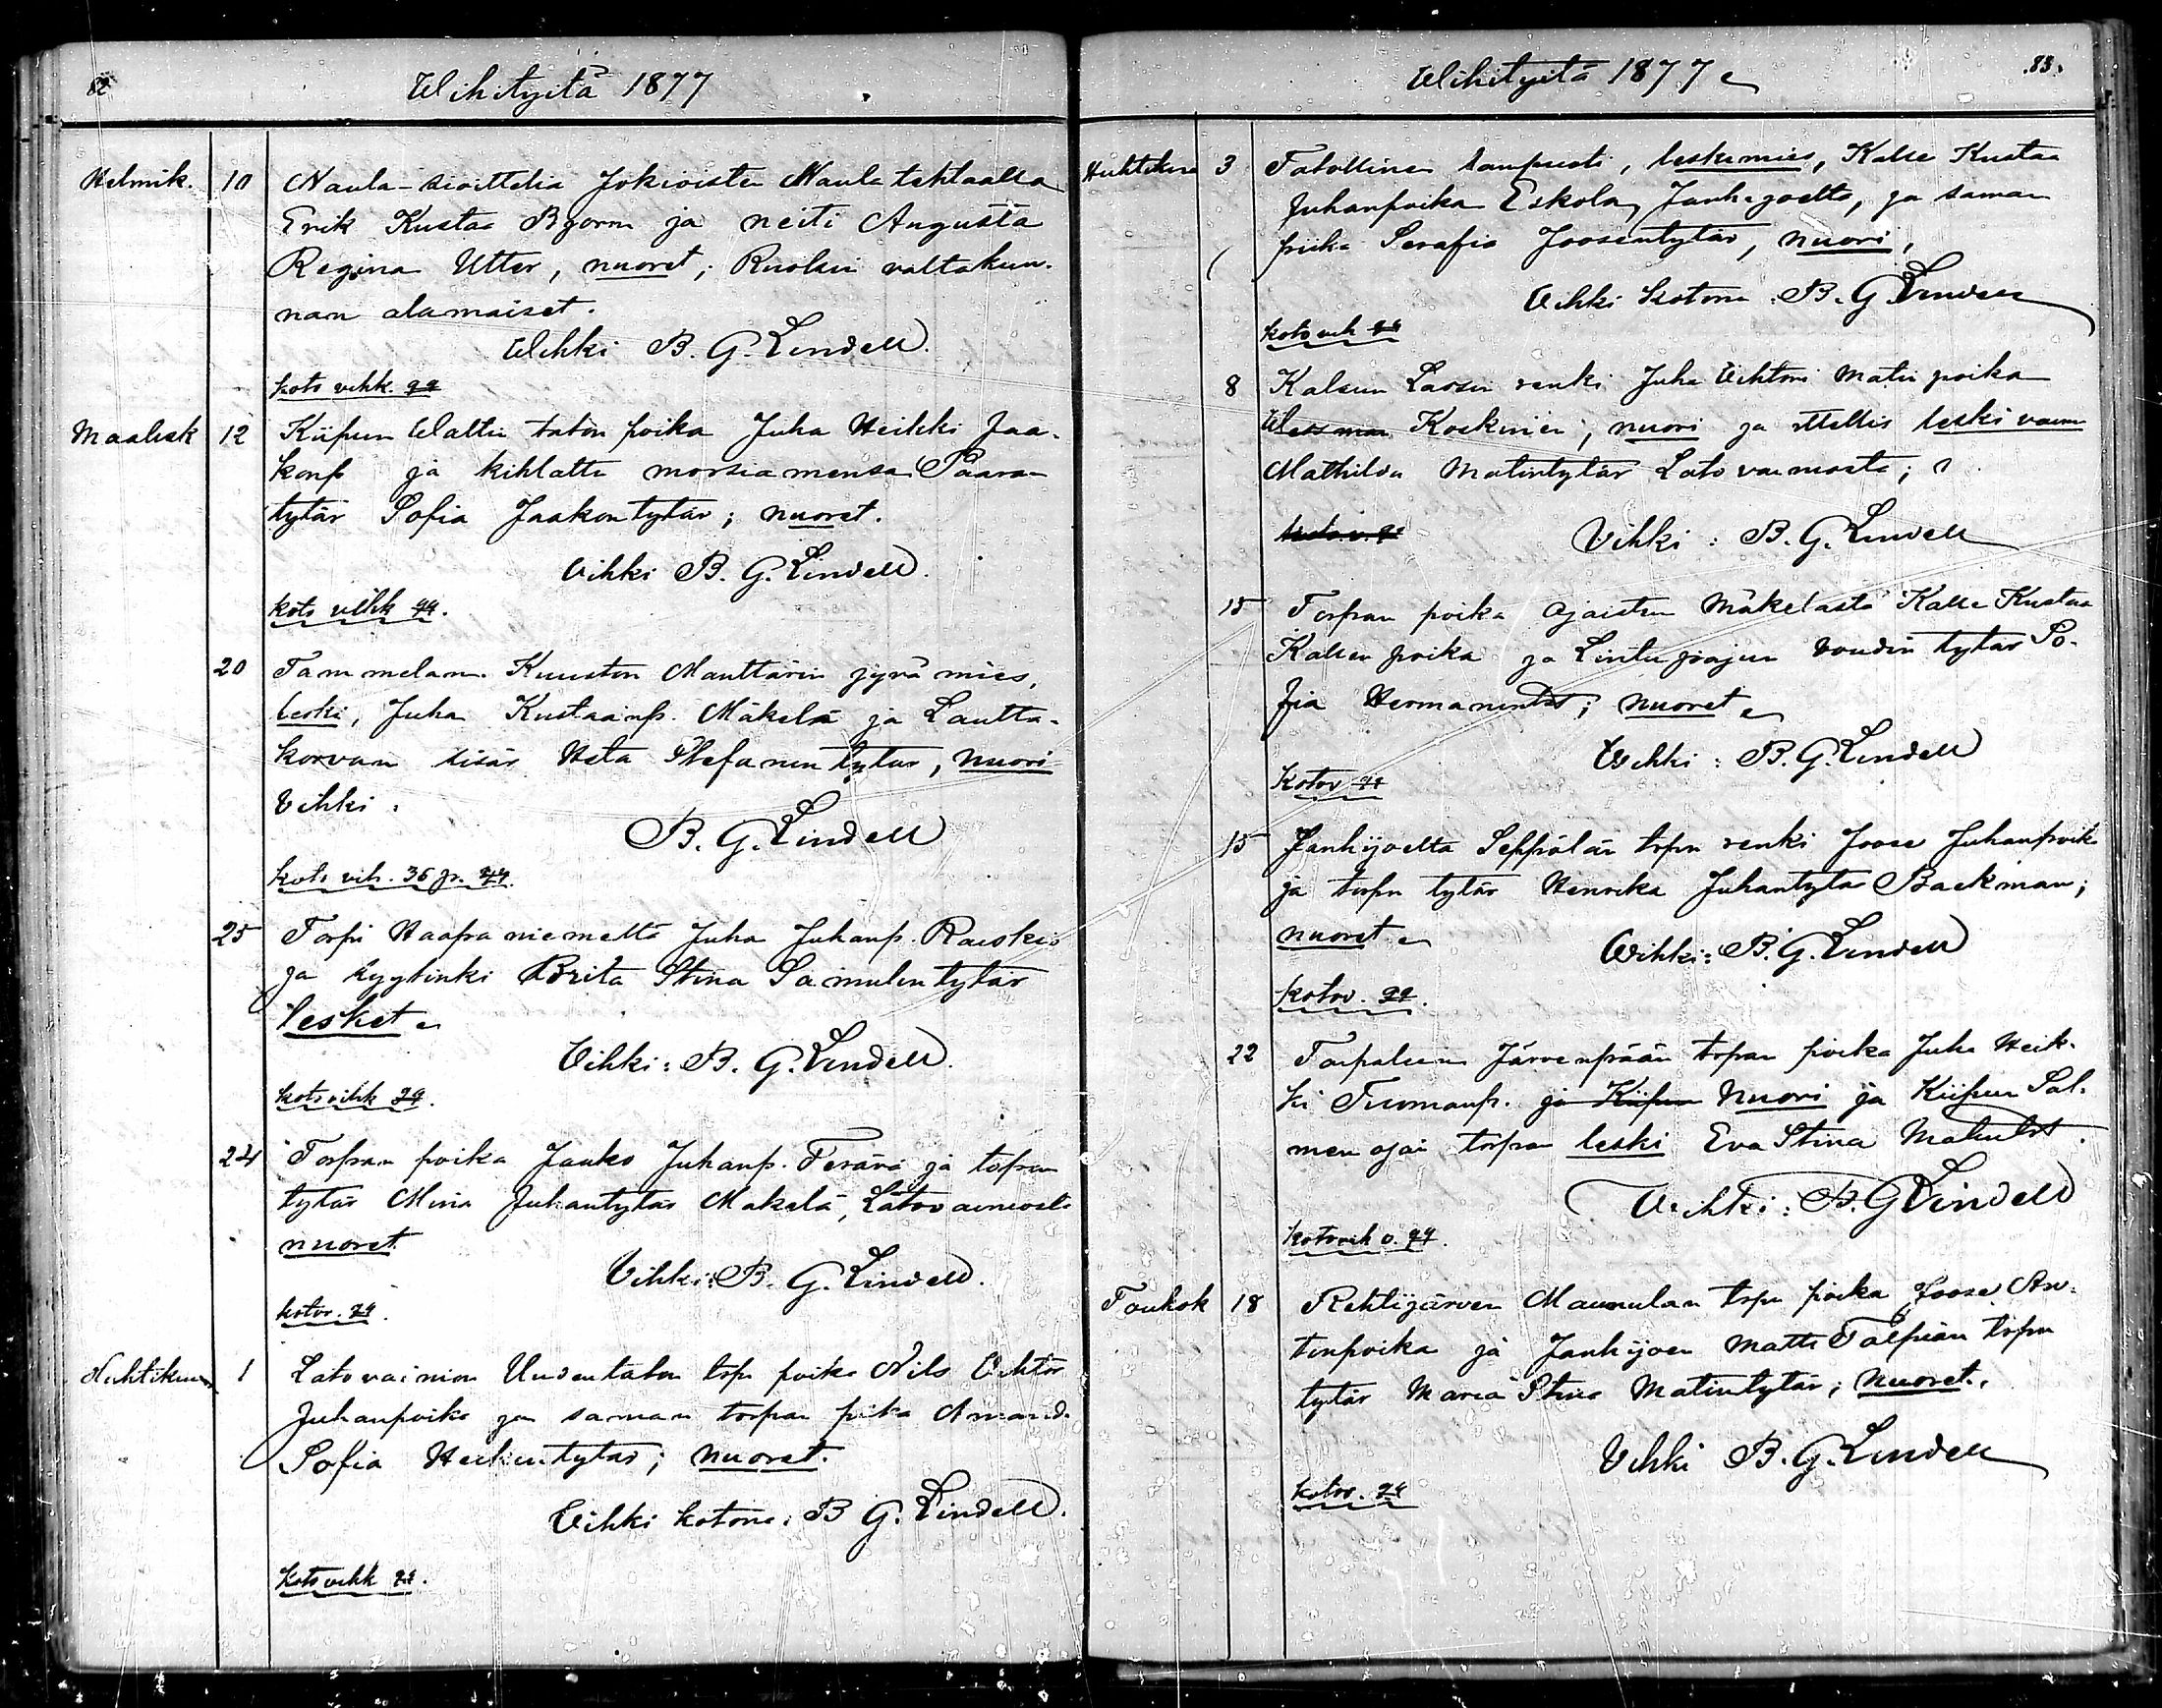 82
Wihityitä 1877
Helmik. 10 Naula-sioittelia Jokioisten Naula tehtaalla
Erik Kustaa Bjorn ja neiti Augusta
Regina Utter, nuoret; Ruotsin valtakun-
nan alamaiset.
Wihki B. G. Lindell.
koto vihk.
Maalisk 12 Kiipun Waltin talon poika Juha Heikki Jaa-
konp ja kihlattu morsiamensa Paara-
tytär Sofia Jaakontytär; nuoret.
Vihki B. G. Lindell.
koto vihk
20 Tammelan Kuuston Manttärin jyvä mies,
leski, Juha Kustaanp. Mäkelä ja Lautta-
korvan sisär Heta Stefanintytär, nuori
Vihki:
B. G. Lindell
koto vih. 36 p.
25 Torp Haapaniemeltä Juha Juhanp. Raiskio
ja Brita Stina Samulintytär
lesket
Vihki: B. G. Lindell.
koto vihk
24 Torpan poika Jaako Juhanp. Terävä ja torpan
tytär Mina Juhantytär Mäkelä, Latovainiosta
nuoret.
Vihki: B. G. Lindell.
kotov.
Huhtikuun 1 Latovainion Uudentalon torp poika Nils Vihtor
Juhanpoika ja saman torpan piika Amand.
Sofia Heikintytär; nuoret.
Vihki kotona: B G. Lindell.
Koto vihk
83.
Wihityitä 1877
Huhtikuu 3 Talollinen lautpuoti, leskimies, Kalle Kustaa
Juhanpoika Eskola, Janhijoelta, ja saman
piika Serafia Joosentytär, nuori,
Vihki kotona: B. G Lindell
koto vih
8 Kalsun Lassin renki Juha Vihtori Matin poika
Wessman Koskinen; nuori ja itsellis leski vaimo
Mathilda Matintytär Latovainiosta;
Vihki: B. G. Lindell
15 Torpan poika Ojaisten Mäkelästä Kalle Kustaa
Kallen poika ja Lintupiajun voudin tytär So-
fia Hermanintr; nuoret
Wihki: B. G. Lindell
Kotov
15 Janhijoelta Seppälän torpn renki Joose Juhanpoik.
ja torpn tytär Henrika Juhantytär Backman;
nuoret
Wihki: B. G. Lindell
kotov.
22 Torpalun Järvenpään torpan poika Juha Heik-
ki Tuomanp. ja Kiipun nuori ja Kiipun Sal-
men ojan torpan leski Eva Stina Matintr.
Vihki: B. G Lindell
kotovih o.
Toukok 18 Rehtijärven Maunulan torpn poika Joose An-
tinpoika ja Janhijoen Matti Talpian torpn
tytär Maria Stina Matintytär; nuoret.
Vihki B. G. Lindell
kotov.